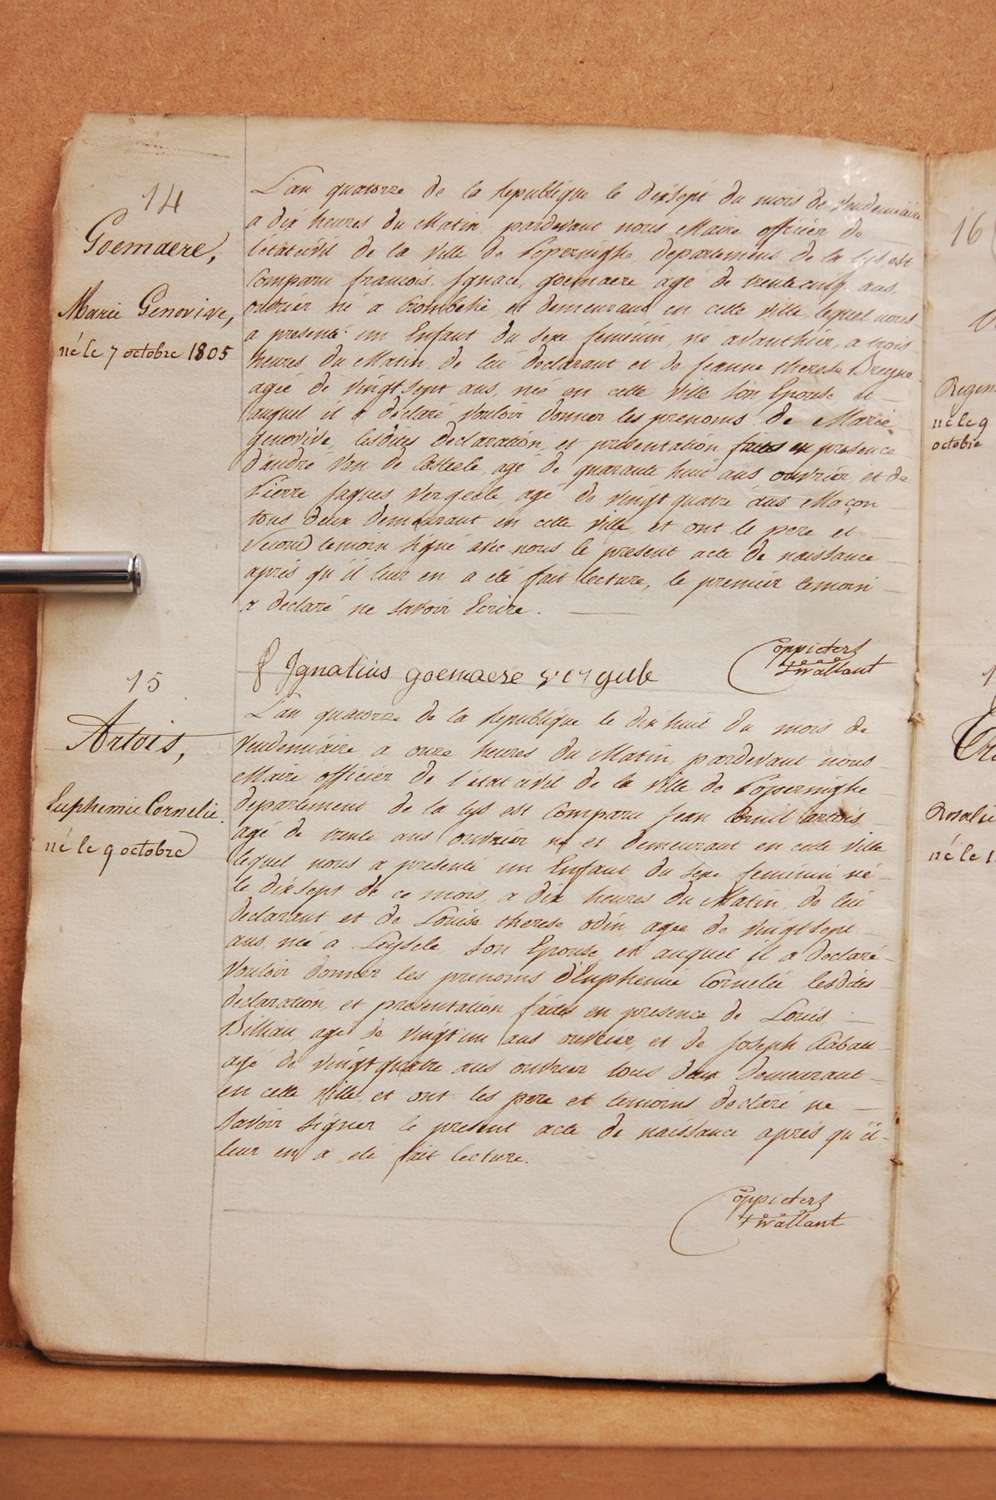 14
Goemaere,
Marie Genovive,
né le 7 octobre 1805
L'an quatorze de la republique le dixsept du mois de Vendemiaire
a dix heures du Matin, pardevant nous Maire officier de
l'etatcivil de la Ville de Poperninghe departement de la Lys est
Comparu francois Ignace goemaere agé de trentecinq ans
ouvrier né a Crombeke, et demeurant en cette Ville lequel nous
a presenté un Enfant du sexe feminin, né avanthier, a trois
heures du Matin, de lui declarant et de Jeanne therese
agée de Vingtsept ans, née en cette Ville Son Epouse et
auquel il a declaré Vouloir donner les prenoms de Marie
genovive, lesdites declaration et presentation faites en presence
d'andré Van de Casteele, agé de quarante huit ans ouvrier, et de
Pierre Jaques Vergeele, agé de Vingt quatre ans Maçon
tous deux demeurant en cette Ville, et ont le pere et
Second temoin Signé avec nous le present acte de naissance
après qu'il leur en a eté fait lecture, le premier temoin
a declaré ne Savoir Ecrire.
f Ignatius goemaere
Coppieters
t'wallant
15
Artois,
Euphemie Cornelie.
né le 9 octobre
L'an quatorze de la republique le dix huit du mois de
Vendemiaire a onze heures du Matin, pardevant nous
Maire officier de l'etatcivil de la Ville de Poperninghe
departement de la Lys est Comparu Jean Corneil artois
agé de trente ans ouvrier né et demeurant en cette Ville
lequel nous a presenté un Enfant du Sexe feminin né
le dixsept de ce mois, a dix heures du Matin, de lui
declarant et de Louise therese odin, agée de Vingtsept
ans, née a Leysele, Son Epouse, et auquel il a declaré
Vouloir donner les prenoms d'Euphemie Cornelie lesdites
declaration, et presentation faites en presence de Louis
Billiau, agé de Vingt'un ans ouvrier, et de Joseph
agé de Vingtquatre ans ouvrier tous deux demeurant
en cette Ville, et ont les pere et temoins declaré ne
Savoir Signer le present acte de naissance après qu'il
leur en a eté fait lecture.
Coppieters
t'wallant
16
né le 9
octobre
né le 1